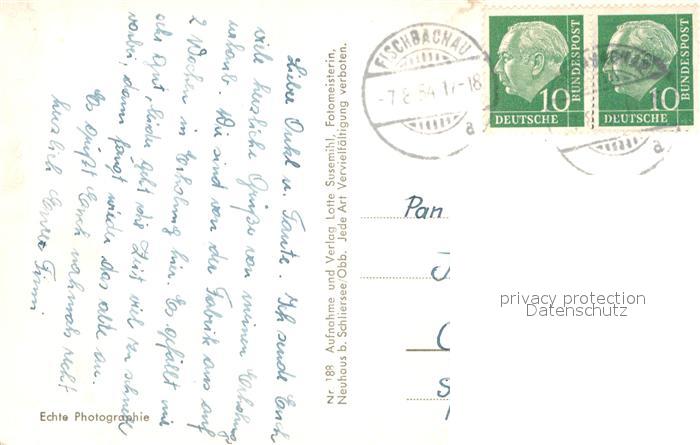 Liebe Onkel u. Tante. Ich sende Euch
viele herzliche Grüße von meinen Erholungs
nahmb. Wir sind von der Fabrik aus auf
2 Wochen in Erholung hier. Es gefällt mir
sehr gut, leider geht die Zeit viel zu schnell
vorbei, dann fängt wieder das alte an.
Es grüßt Euch nochmals recht
herzlich Eurer
Echte Photographie
Nr. 188 Aufnahme und Verlag Lotte Susemihl, Fotomeisterin,
Neuhaus b. Schliersee/Obb. Jede Art Vervielfältigung verboten.
FISCHBACHAU
-7.8.54.17-18
a
10
DEUTSCHE
BUNDESPOST
10
DEUTSCHE
BUNDESPOST
a
Pan
privacy protection
Datenschutz